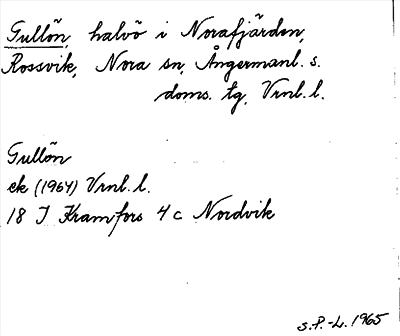 Gullön, halvö i Norafjärden,
Rossvik, Nora sn, Ångermanl. s.
doms. tg, Vrnl. l.
Gullön
ek (1964) Vrnl. l.
18 I Kramfors 4 c Nordvik
s. P.-L. 1965